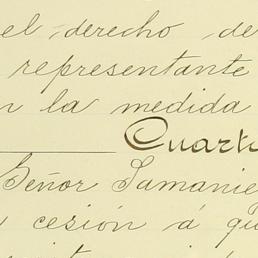 el derecho de
representante
n la medida
Cuart
Señor Samanie
cesión á qu